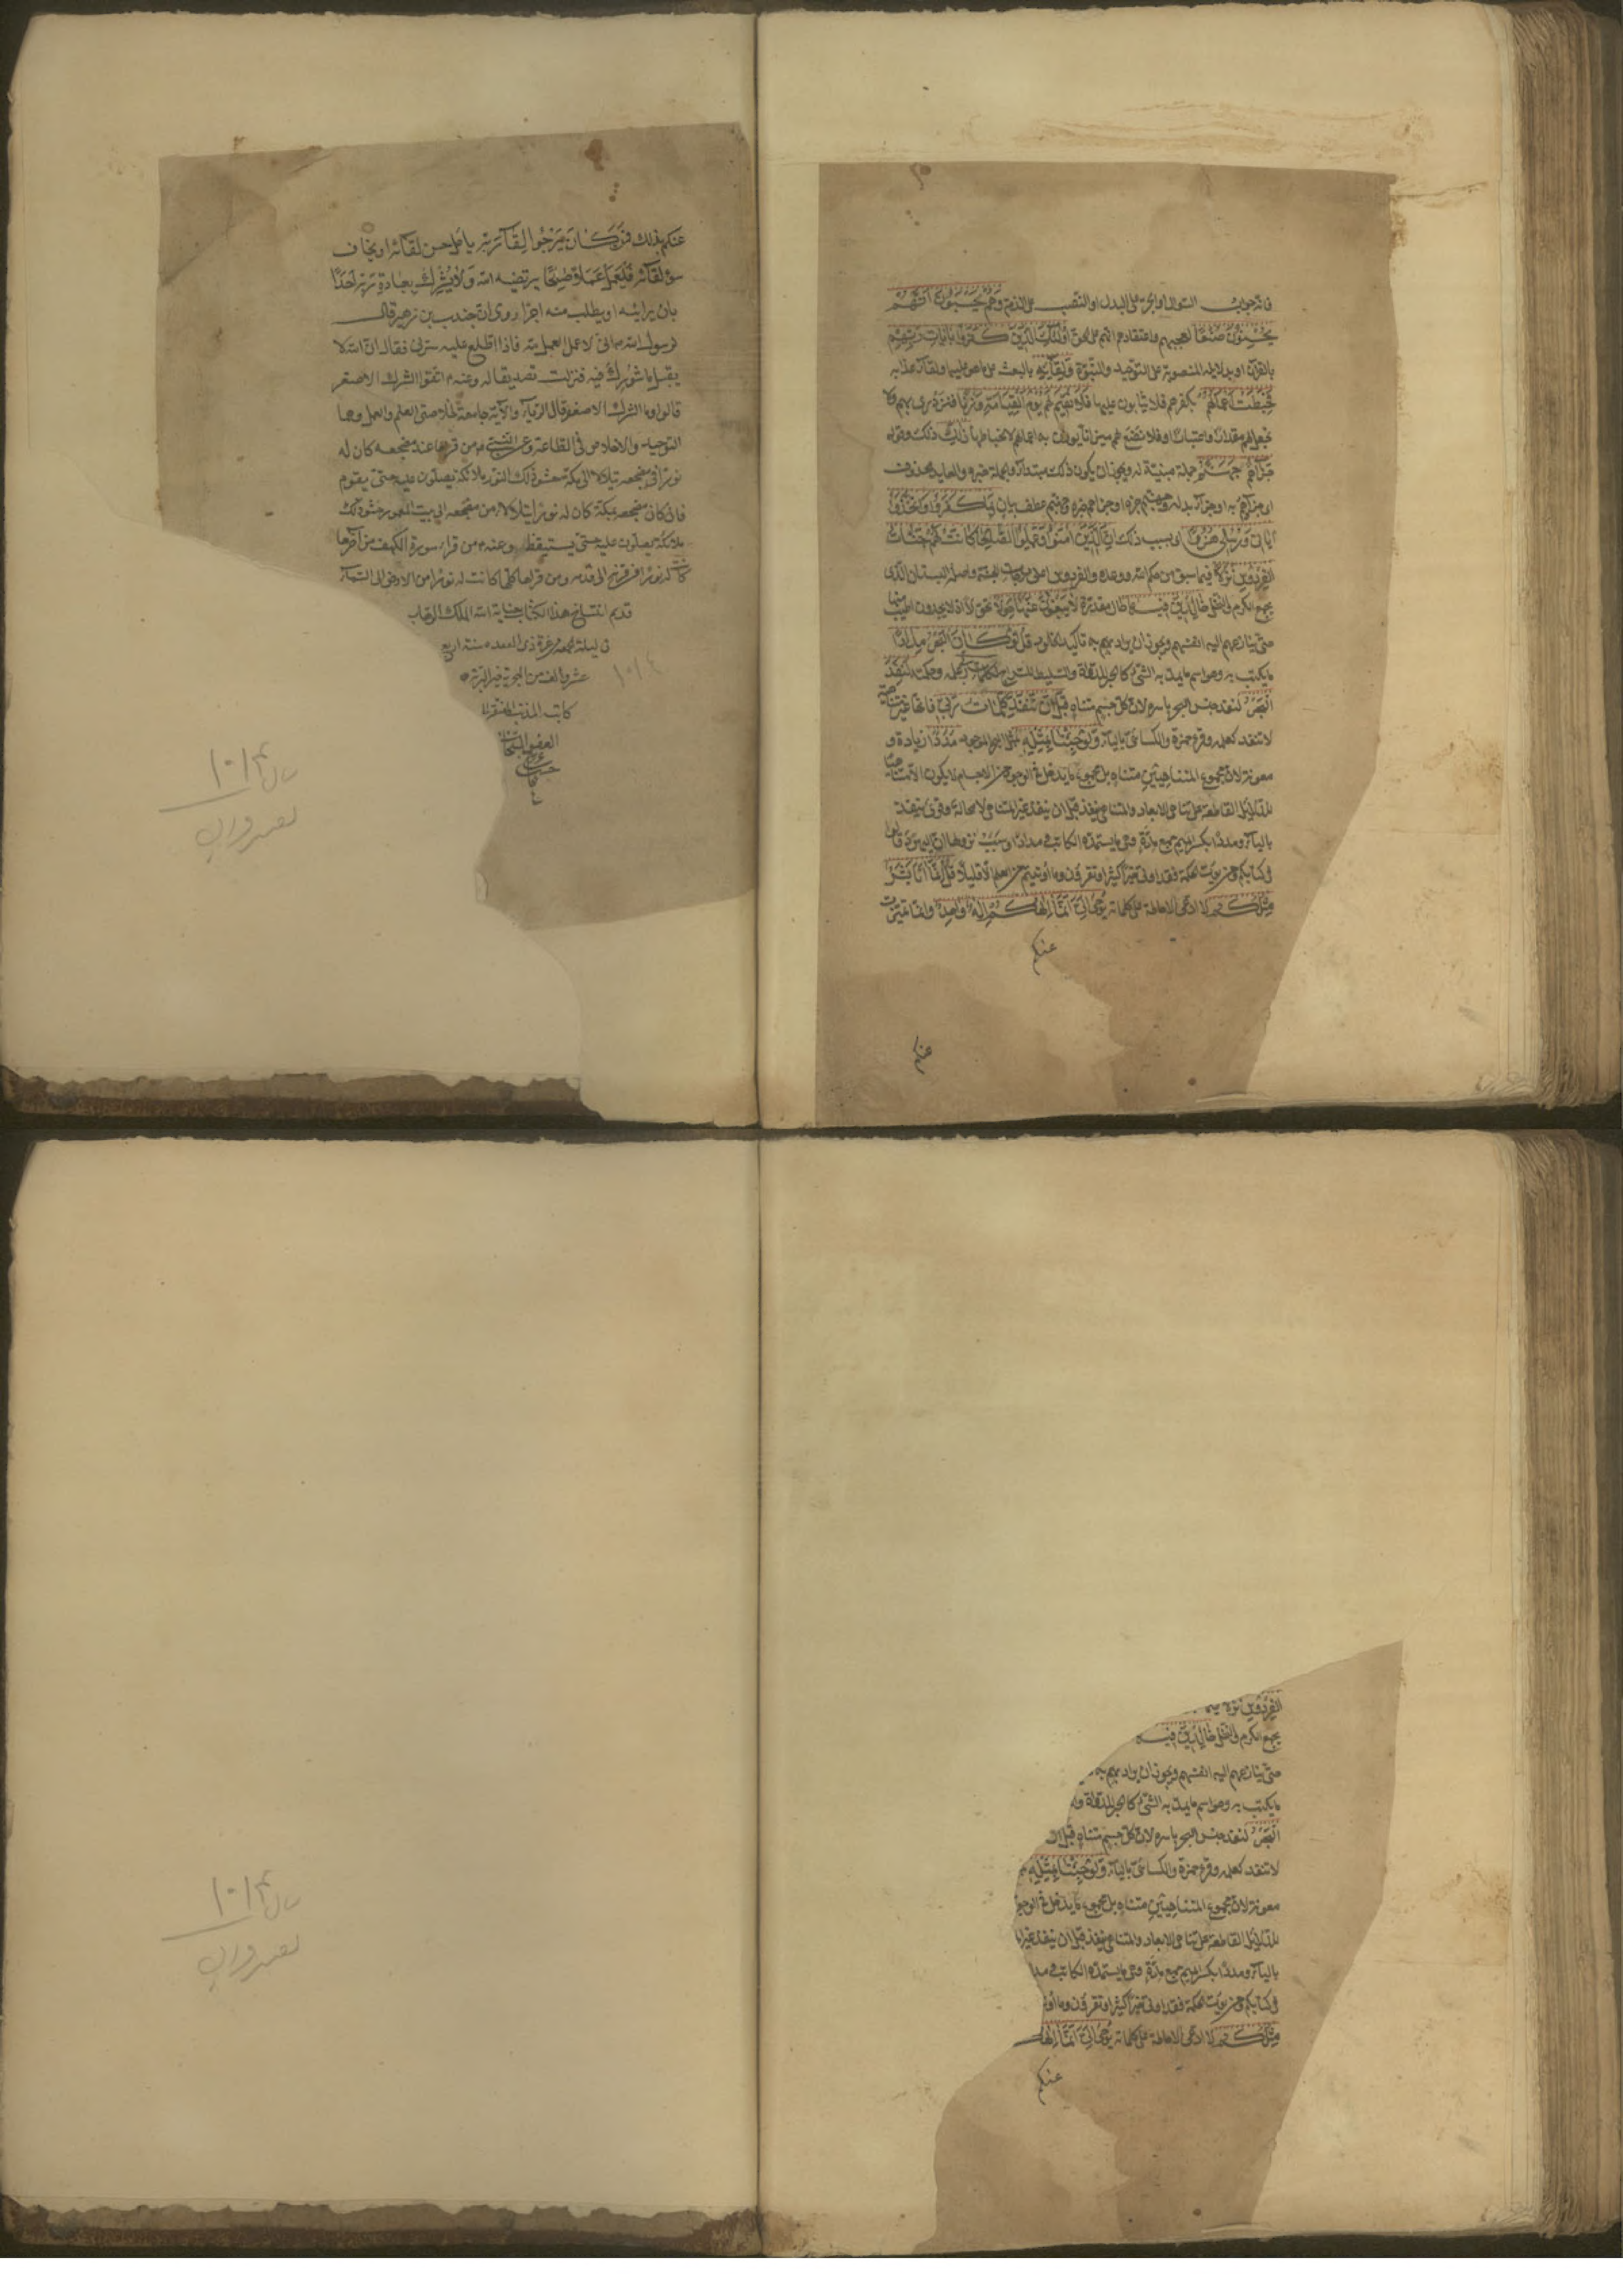 فانه جواب السؤال او الجر على البدل او النصب على الذم وَهُمْ يَحْسَبُونَ اَنَّهُمْ
يُحْسِنُونَ صُنْعًا لعجبهم واعتقادهم انهم على الحق اُولٰئِكَ الَّذِينَ كَفَرُوا بِاٰيَاتِ رَبِّهِمْ
بالقرآن او بدلايله المنصوبة على التوحيد والنبوة وَلِقَآئِهِ بالبعث على ما هو عليه او لقآء عذابه
فَحَبِطَتْ اَعْمَالُهُمْ بكفرهم فلا يثابون عليها فَلَا نُقِيمُ لَهُمْ يَوْمَ الْقِيَامَةِ وَزْنًا فنزدرى بهم ولا
نجعل لهم مقدارا واعتبارا او فلا نضع لهم ميزانا يوزن به اعمالهم لانحباطها ذلك ذلك وقوله
جَزَاؤُهُمْ جَهَنَّمُ جملة مبينة له ويجوز ان يكون ذلك مبتدآ والجملة خبره والعايد محذوف
او جزآؤهم بدله وجهنم خبره او جزاؤهم خبره وجهنم عطف بيان بِمَا كَفَرُوا وَاتَّخَذُوا
اٰيَاتِى وَرُسُلِى هُزُوًا اى بسبب ذلك اِنَّ الَّذِينَ اٰمَنُوا وَعَمِلُوا الصَّالِحَاتِ كَانَتْ لَهُمْ جَنَّاتُ
الْفِرْدَوْسِ نُزُلًا فيما سبق من حكم الله ووعده والفردوس اعلى درجات الجنة واصله البستان الذى
يجمع الكرم والنخل خَالِدِينَ فِيهَا حال مقدرة لَا يَبْغُونَ عَنْهَا حِوَلًا تحولا اذ لا يجدون اطيب منها
حتى ينازعهم اليه انفسهم ويجوز ان يراد بهم به تاكيد الخلود قُلْ لَوْ كَانَ الْبَحْرُ مِدَادًا
ما يكتب به وهو اسم ما يمد به الشئ كالحبر للدواة والسليط للسراج لِكَلِمَاتِ رَبِّى لكلمات علمه وحكمته لَنَفِدَ
الْبَحْرُ لنفد جنس البحر باسره لان كل جسم متناه قَبْلَ اَنْ تَنْفَدَ كَلِمَاتُ رَبِّى فانها غير متناهية
لا تنفد كعلمه وقرء حمزة والكسائى باليآء وَلَوْ جِئْنَا بِمِثْلِهِ بمثل البحر الموجود مَدَدًا زيادة و
معونة لان مجموع المتناهيين متناه بل مجموع ما يدخل فى الوجود من الاجسام لا يكون الا متناهيا
للدلايل القاطعة على تناهى الابعاد والمتناهى ينفد قبل ان ينفد غير المتناهى لا محالة وقرئ ينفد
باليآء ومددا بكسر الميم جمع مدة وهى ما يستمده الكاتب ومدادا وسبب نزولها ان اليهود قالوا
فى كتابكم ومن يؤت الحكمة فقد اوتى خيرا كثيرا وتقرؤن وما اوتيتم من العلم الا قليلا قُلْ اِنَّمَا اَنَا بَشَرٌ
مِثْلُكُمْ لا ادعى الاحاطة على كلماته يُوحٰى اِلَىَّ اَنَّمَا اِلٰهُكُمْ اِلٰهٌ وَاحِدٌ وانما تميزت
عنكم
عنكم
عنكم بذلك فَمَنْ كَانَ يَرْجُوا لِقَآءَ رَبِّهِ يامل حسن لقآئه او يخاف
سوء لقآئه فَلْيَعْمَلْ عَمَلًا صَالِحًا يرتضيه الله وَلَا يُشْرِكْ بِعِبَادَةِ رَبِّهِ اَحَدًا
بان يرائيه او يطلب منه اجرا روى ان جندب بن زهير قال
لرسول الله انى لاعمل العمل لله فاذا اطلع عليه سرنى فقال ان الله لا
يقبل ما شورك فيه فنزلت تصديقا له وعنه اتقوا الشرك الاصغر
قالوا وما الشرك الاصغر قال الريآء والآية جامعة لخلاصتى العلم والعمل وهما
التوحيد والاخلاص فى الطاعة وعن النبى من قرءها عند مضجعه كان له
نورا فى مضجعه يتلألأ الى مكة حشو ذلك النور ملائكة يصلون عليه حتى يقوم
فان كان مضجعه بمكة كان له نورا يتلألأ من مضجعه الى بيت المعمور حشو ذلك
ملائكة يصلون عليه حتى يستيقظ وعنه من قرء سورة الكهف من آخرها
كانت له نورا من قرنه الى قدمه ومن قرءها كلها كانت له نورا من الارض الى السمآء
قد تم انتساخ هذا الكتاب بعناية الله الملك الوهاب
فى ليلة الجمعة غرة ذى القعده سنة اربع
عشر والف من الهجرية خير البرية
١٠١٤
كاتبه المذنب المفتقر الى
العفو
سال ١٠١٤
الفِرْدَوْسِ نُزُلًا فيما
يجمع الكرم والنخل خَالِدِينَ فِيهَا
حتى ينازعهم اليه انفسهم ويجوز ان يراد بهم به
ما يكتب به وهو اسم ما يمد به الشئ كالحبر للدواة
الْبَحْرُ لنفد جنس البحر باسره لان كل جسم متناه قَبْلَ اَنْ
لا تنفد كعلمه وقرء حمزة والكسائى باليآء وَلَوْ جِئْنَا بِمِثْلِهِ
معونة لان مجموع المتناهيين متناه بل مجموع ما يدخل فى الوجو
للدلايل القاطعة على تناهى الابعاد والمتناهى ينفد قبل ان ينفد غير ا
باليآء ومددا بكسر الميم جمع مدة وهى ما يستمده الكاتب ومدا
فى كتابكم ومن يؤت الحكمة فقد اوتى خيرا كثيرا وتقرؤن وما اوتـ
مِثْلُكُمْ لا ادعى الاحاطة على كلماته يُوحٰى اِلَىَّ اَنَّمَا اِلٰهُكُـ
عنكم
سال ١٠١٤